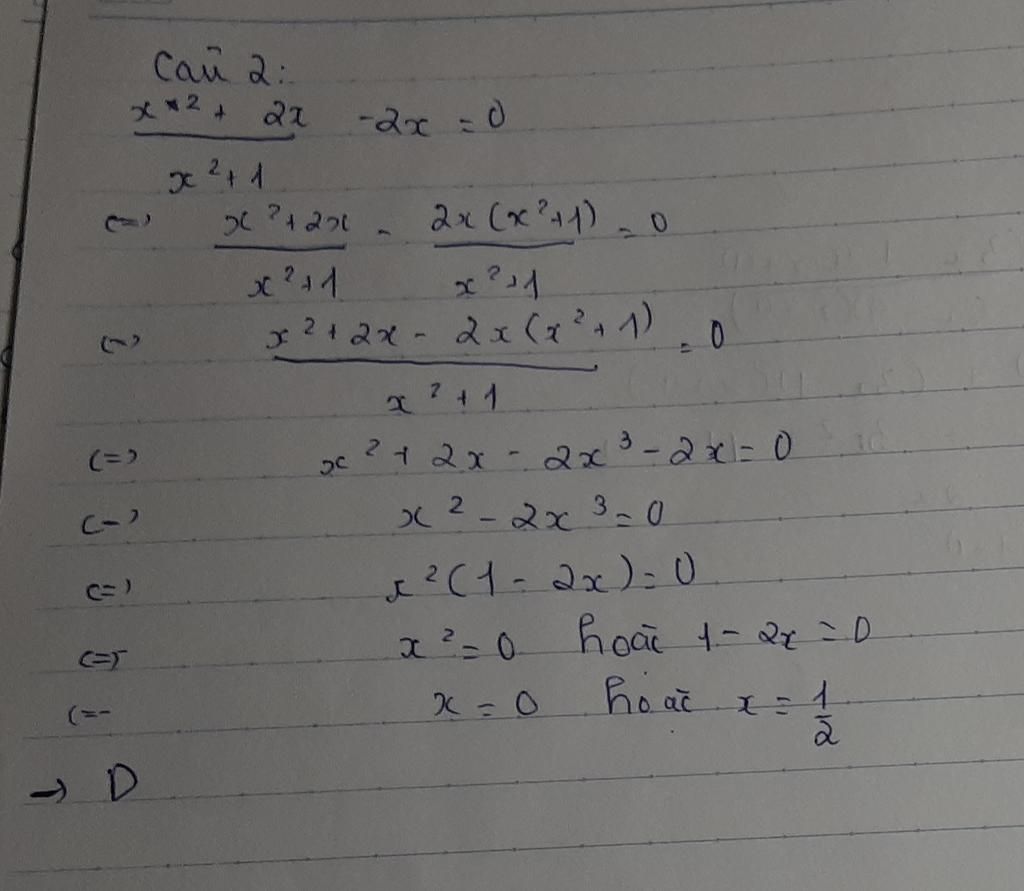 Câu 2:
x^2 + 2x - 2x = 0
x^2 + 1
<=> x^2 + 2x - 2x(x^2 + 1) = 0
x^2 + 1 x^2 + 1
<=> x^2 + 2x - 2x(x^2 + 1) = 0
x^2 + 1
<=> x^2 + 2x - 2x^3 - 2x = 0
<=> x^2 - 2x^3 = 0
<=> x^2(1 - 2x) = 0
<=> x^2 = 0 hoặc 1 - 2x = 0
<=> x = 0 hoặc x = 1/2
→ D